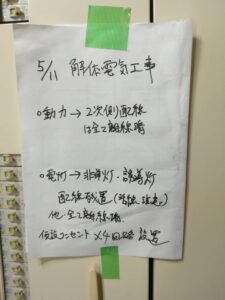 5/11 解体電気工事
○動力→2次側配線
は全て離線済
○電灯→非常灯・誘導灯
配線残置(経路注意)
他、全て離線済。
仮設コンセント×4回路 設置